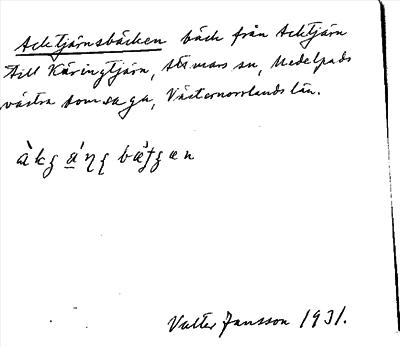 Acktjärnsbäcken bäck från Acktjärn
till Käringtjärn, Stömars sn, Medelpads
västra domsaga, Västernorrlands län.
Valter Jansson 1931.